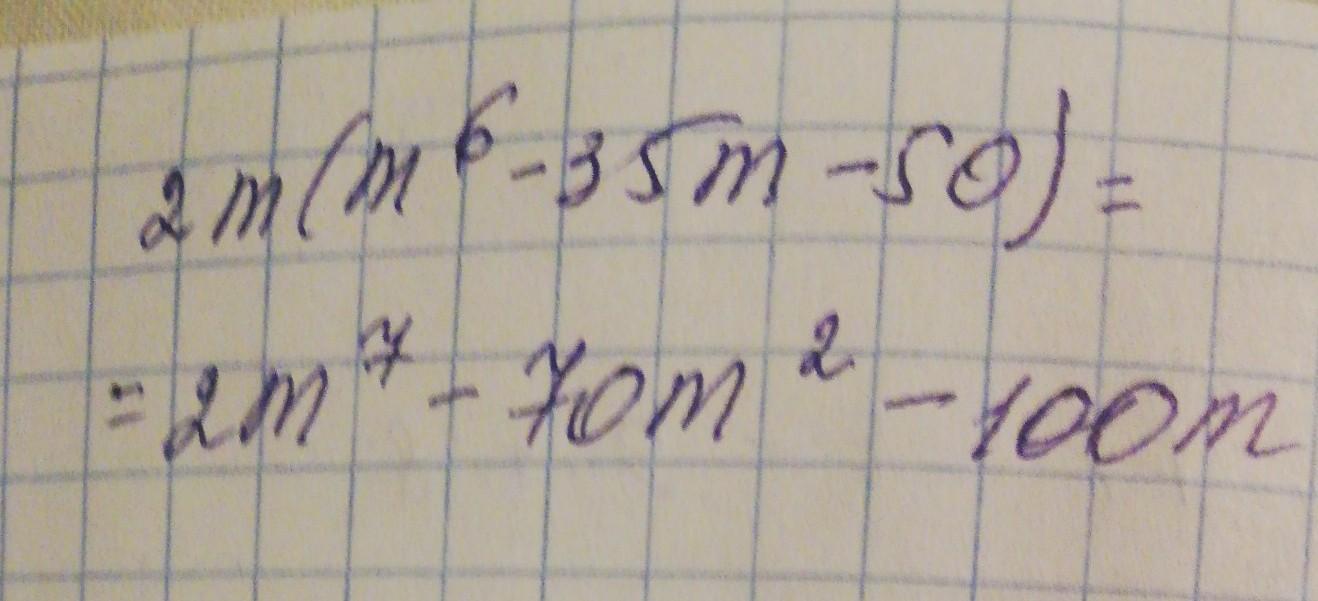 2m(m⁶-35m-50)=
=2m⁷-70m²-100m